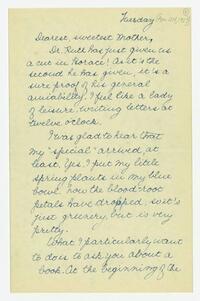 Tuesday
Dearest, sweetest Mother,
Dr. Rutt has just given us
a cut in Horace! As it is the
second he has given, it is a
sure proof of his general
amiability. I feel like a lady
of leisure, writing letters at
twelve o'clock.
I was glad to hear that
my "special" arrived, at
least. Yes, I put my little
spring plants in my blue
bowl. Now the bloodroot
petals have dropped, so it's
just greenery, but is very
pretty.
What I particularly want
to do is to ask you about a
book. At the beginning of the